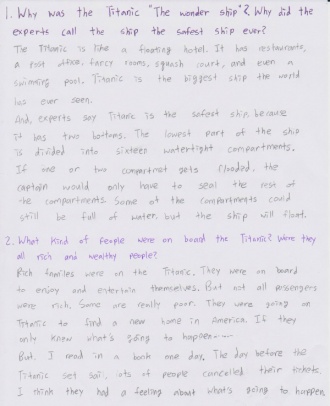 1. Why was the Titanic "The wonder ship"? Why did the
experts call the ship the safest ship ever?
The Titanic is like a floating hotel. It has restaurants,
a post office, fancy rooms, squash court, and even a
swimming pool. Titanic is the biggest ship the world
has ever seen.
And, experts say Titanic is the safest ship, because
it has two bottoms. The lowest part of the ship
is divided into sixteen watertight compartments.
If one or two compartmet gets flooded, the
captain would only have to seal the rest of
the compartments. Some of the compartments could
still be full of water, but the ship will float.
2. What kind of people were on board the Titanic? Were they
all rich and wealthy people?
Rich familes were on the Titanic. They were on board
to enjoy and entertain themselves. But not all passengers
were rich. Some are really poor. They were going on
Titanic to find a new home in America. If they
only knew what's going to happen~~
But, I read in a book one day, The day before the
Titanic set sail, lots of people cancelled their tickets.
I think they had a feeling about what's going to happen.